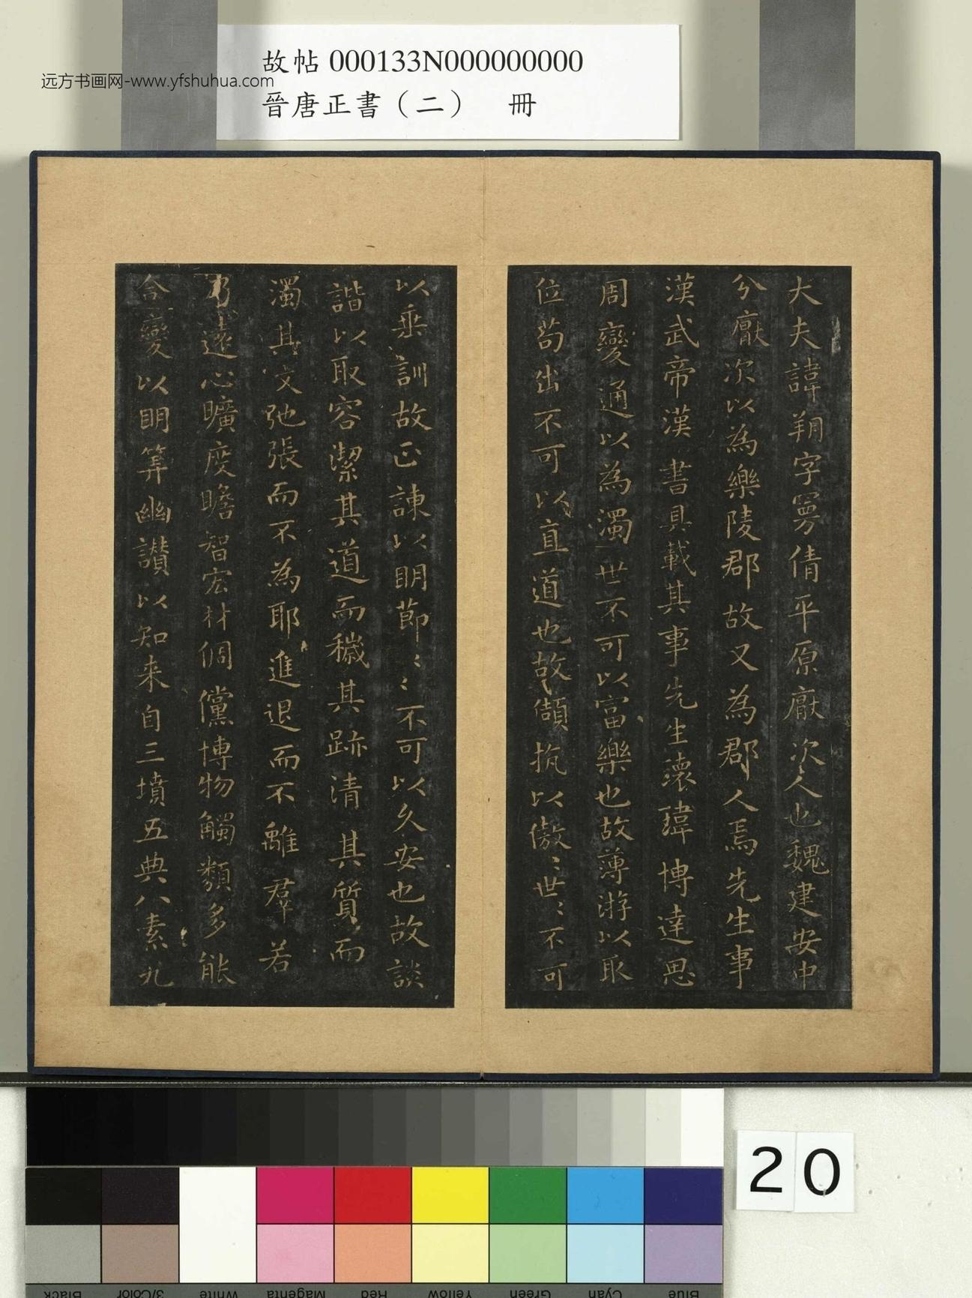 故帖 000133N000000000
远方书画网-www.yfshuhua.com
晉唐正書（二） 冊
大夫諱朔字曼倩平原厭次人也魏建安中
分厭次以為樂陵郡故又為郡人焉先生事
漢武帝漢書具載其事先生瓌瑋博達思
周變通以為濁世不可以富樂也故薄游以取
位苟出不可以直道也故頡抗以傲〻世〻不可
以垂訓故正諫以明節〻〻不可以久安也故談
諧以取容潔其道而穢其跡清其質而
濁其文弛張而不為耶進退而不離羣若
乃遠心曠度瞻智宏材倜儻博物觸類多能
合變以明筭幽讃以知来自三墳五典八素九
20
Black
3/Color
White
Magenta
Red
Yellow
Green
Cyan
Blue